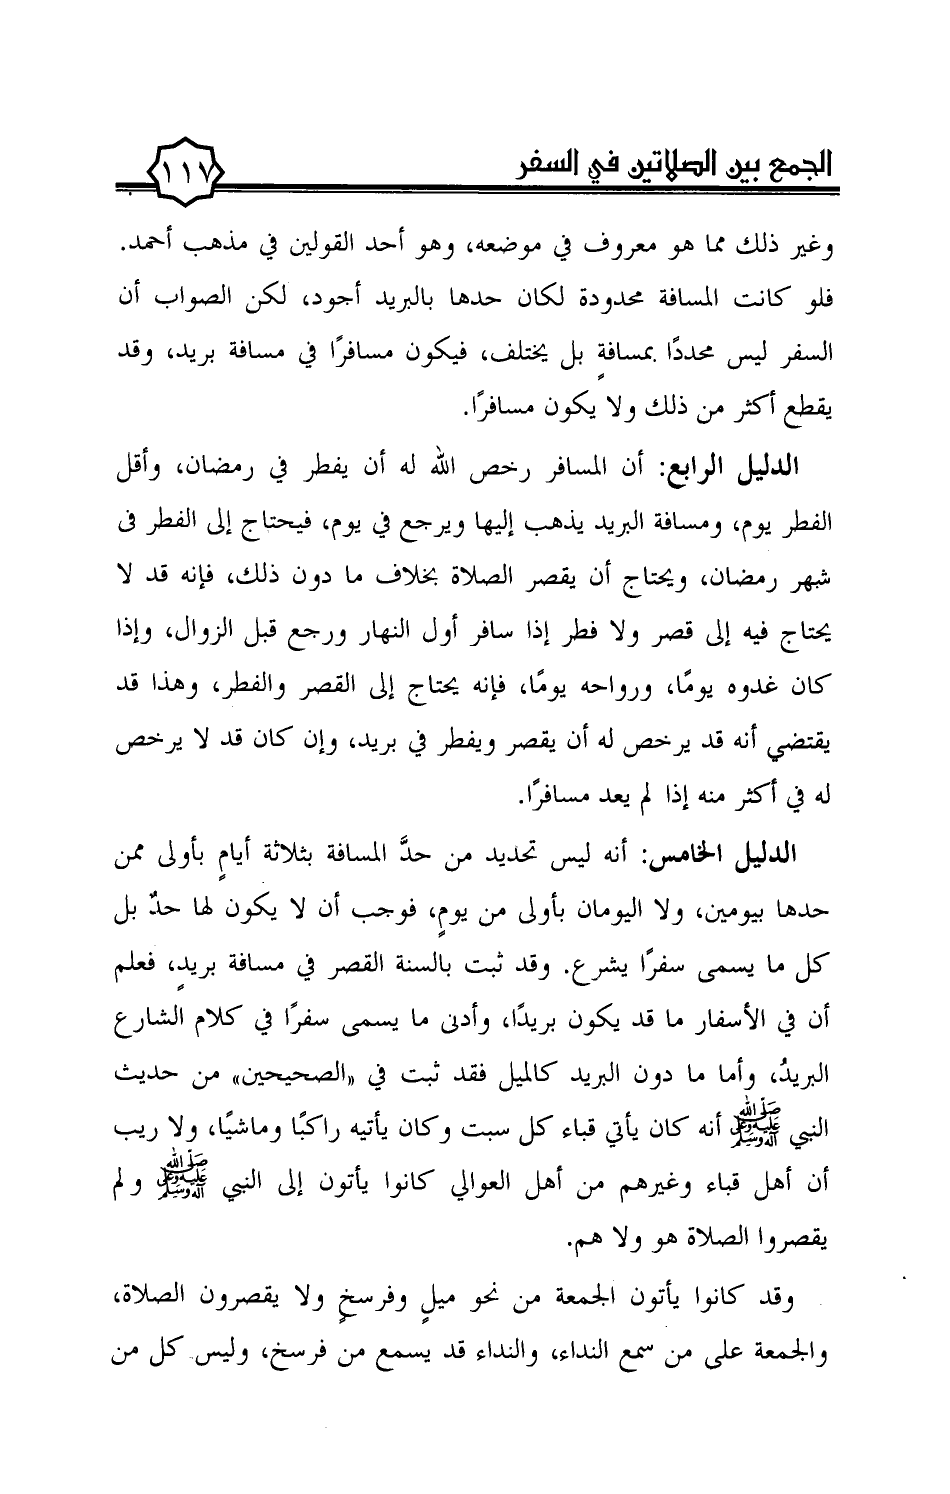 الجمع بين الصلاتين في السفر
١١٧
وغير ذلك مما هو معروف في موضعه، وهو أحد القولين في مذهب أحمد.
فلو كانت المسافة محدودة لكان حدها بالبريد أجود، لكن الصواب أن
السفر ليس محددًا بمسافةٍ بل يختلف، فيكون مسافرًا في مسافة بريد، وقد
يقطع أكثر من ذلك ولا يكون مسافرًا.
الدليل الرابع: أن المسافر رخص الله له أن يفطر في رمضان، وأقل
الفطر يوم، ومسافة البريد يذهب إليها ويرجع في يوم، فيحتاج إلى الفطر فى
شهر رمضان، ويحتاج أن يقصر الصلاة بخلاف ما دون ذلك، فإنه قد لا
يحتاج فيه إلى قصر ولا فطر إذا سافر أول النهار ورجع قبل الزوال، وإذا
كان غدوه يومًا، ورواحه يومًا، فإنه يحتاج إلى القصر والفطر، وهذا قد
يقتضي أنه قد يرخص له أن يقصر ويفطر في بريد، وإن كان قد لا يرخص
له في أكثر منه إذا لم يعد مسافرًا.
الدليل الخامس: أنه ليس تحديد من حدَّ المسافة بثلاثة أيامٍ بأولى ممن
حدها بيومين، ولا اليومان بأولى من يومٍ، فوجب أن لا يكون لها حدٌ بل
كل ما يسمى سفرًا يشرع. وقد ثبت بالسنة القصر في مسافة بريدٍ، فعلم
أن في الأسفار ما قد يكون بريدًا، وأدنى ما يسمى سفرًا في كلام الشارع
البريدُ، وأما ما دون البريد كالميل فقد ثبت في «الصحيحين» من حديث
النبي ﷺ أنه كان يأتي قباء كل سبت وكان يأتيه راكبًا وماشيًا، ولا ريب
أن أهل قباء وغيرهم من أهل العوالي كانوا يأتون إلى النبي ﷺ ولم
يقصروا الصلاة هو ولا هم.
وقد كانوا يأتون الجمعة من نحو ميلٍ وفرسخٍ ولا يقصرون الصلاة،
والجمعة على من سمع النداء، والنداء قد يسمع من فرسخ، وليس كل من